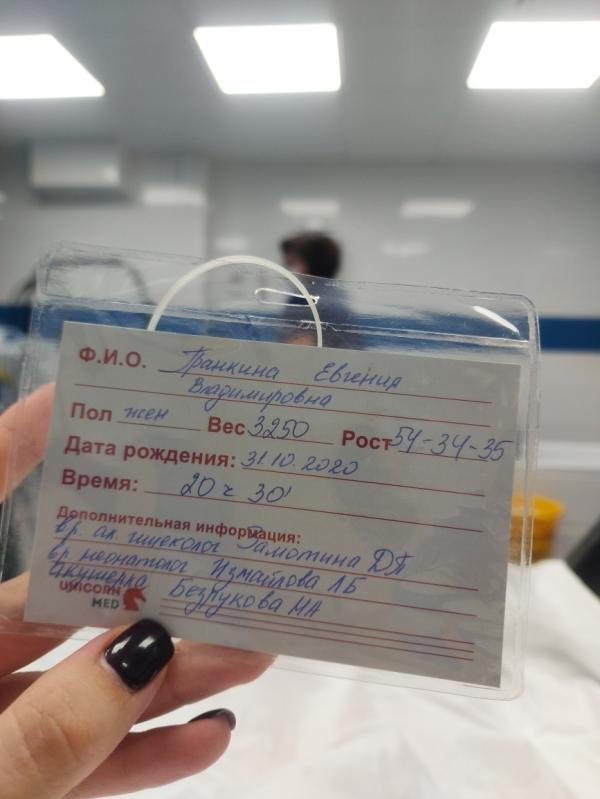 Ф.И.О. Гранкина Евгения
Владимировна
Пол жен Вес 3250 Рост 54-34-35
Дата рождения: 31.10.2020
Время: 20 ч 30'
Дополнительная информация:
вр. ак. гинеколог Гамотина ДП
вр. неонатолог Измайлова ЛБ
акушерка Безрукова НА
UNICORN
MED